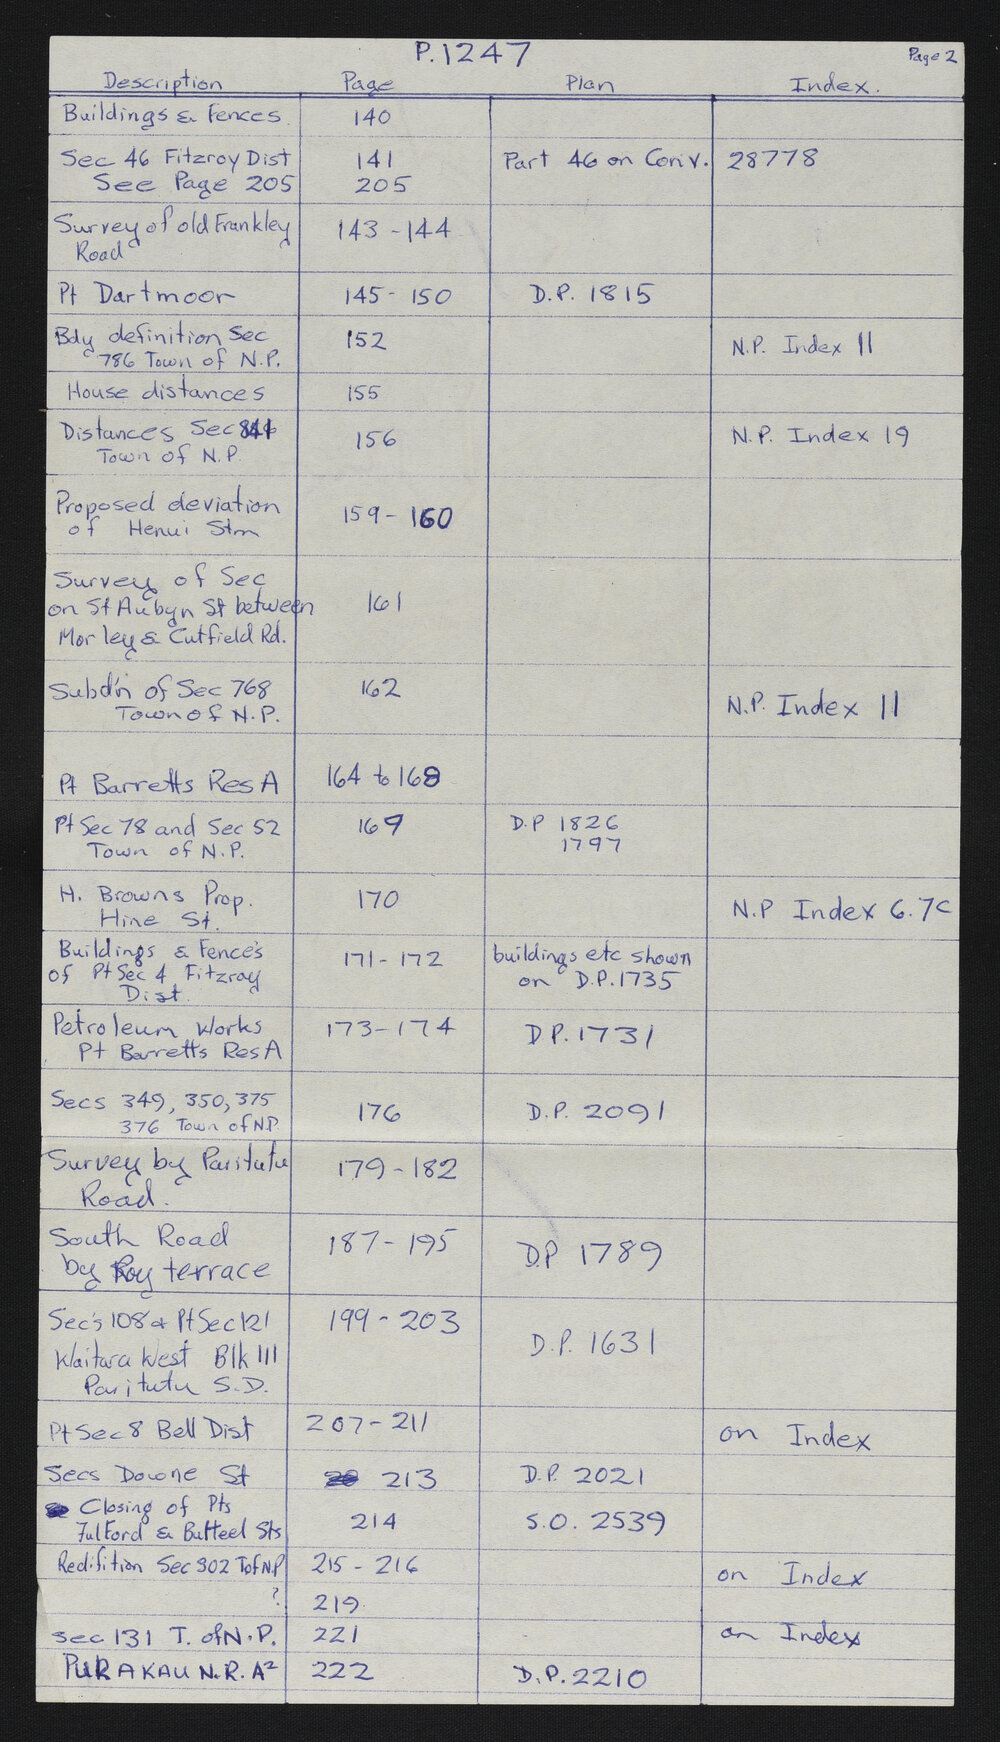 P.1247
Page 2
Description Page Plan Index.
Buildings & Fences. 140
Sec 46 Fitzroy Dist 141 Part 46 on Conv. 28778
See Page 205 205
Survey of old Frankley 143 - 144
Road
Pt Dartmoor 145 - 150 D.P. 1815
Bdy definition Sec 152 N.P. Index 11
786 Town of N.P.
House distances 155
Distances Sec 841 156 N.P. Index 19
Town of N.P.
Proposed deviation 159 - 160
of Henui Stm
Survey of Sec
on St Aubyn St between 161
Morley & Cutfield Rd.
Subd'n of Sec 768 162 N.P. Index 11
Town of N.P.
Pt Barretts Res A 164 to 168
Pt Sec 78 and Sec 52 169 D.P 1826
Town of N.P. 1797
H. Browns Prop. 170 N.P Index 6.7C
Hine St.
Buildings & Fence's 171 - 172 buildings etc shown
of Pt Sec 4 Fitzroy on D.P.1735
Dist.
Petroleum Works 173 - 174 D.P. 1731
Pt Barretts Res A
Secs 349, 350, 375 176 D.P. 2091
376 Town of N.P
Survey by Paritutu 179 - 182
Road.
South Road 187 - 195 D.P 1789
by Roy terrace
Sec's 108 & Pt Sec 121 199 - 203 D.P. 1631
Waitara West Blk III
Paritutu S.D.
Pt Sec 8 Bell Dist 207 - 211 on Index
Secs Downe St 213 D.P. 2021
Closing of Pts 214 S.O. 2539
Fulford & Butteel Sts
Redifition Sec 302 T of N.P 215 - 216 on Index
? 219
Sec 131 T. of N.P. 221 on Index
PURAKAU N.R. A² 222 D.P. 2210